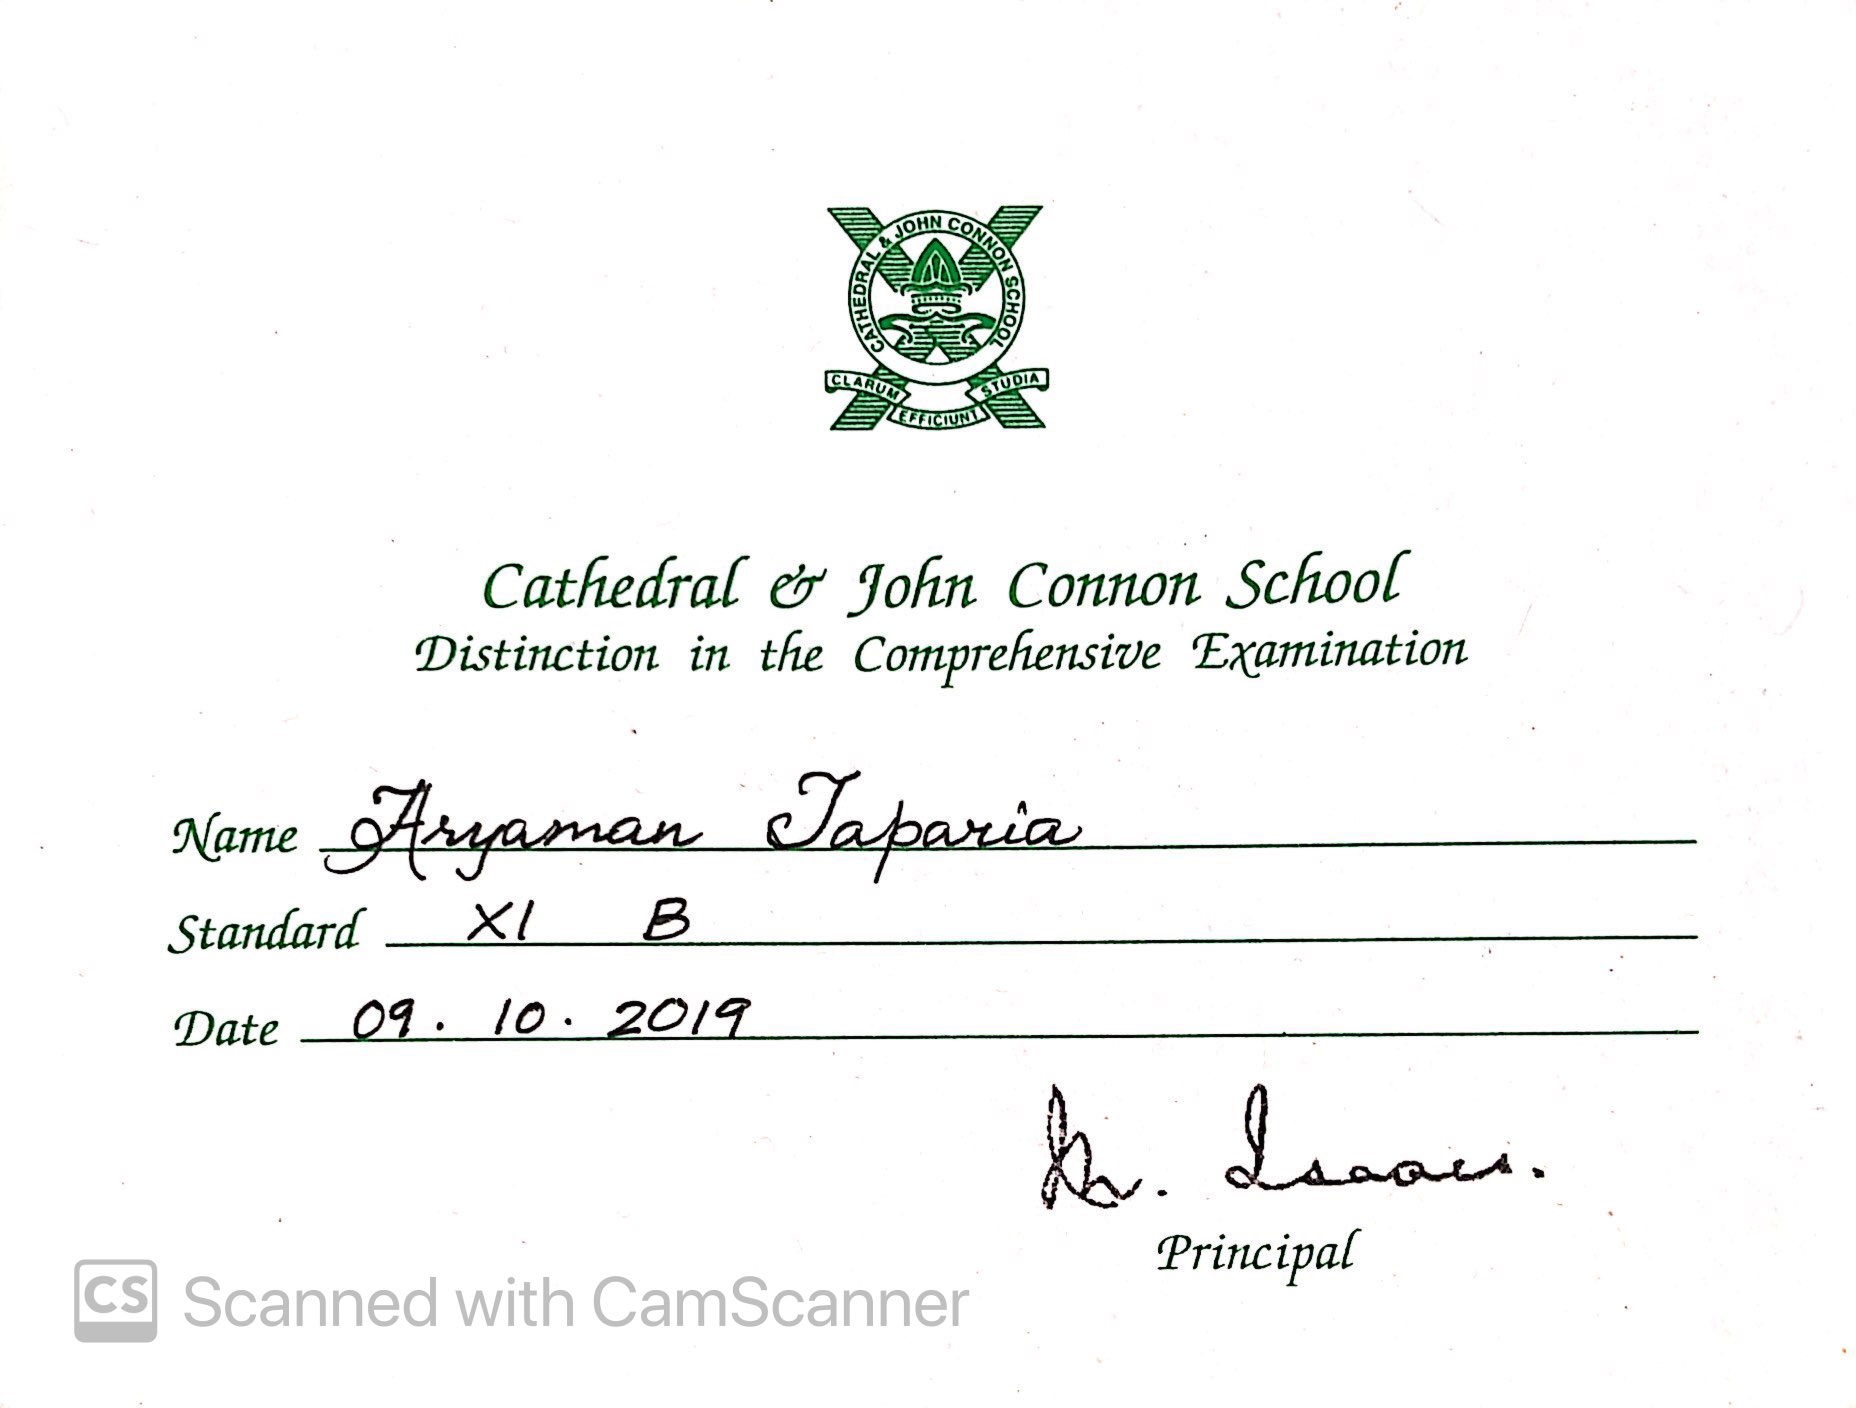 CATHEDRAL & JOHN CONNON SCHOOL
CLARUM EFFICIUNT STUDIA
Cathedral & John Connon School
Distinction in the Comprehensive Examination
Name Aryaman Taparia
Standard XI B
Date 09. 10. 2019
Isaacs.
Principal
CS Scanned with CamScanner